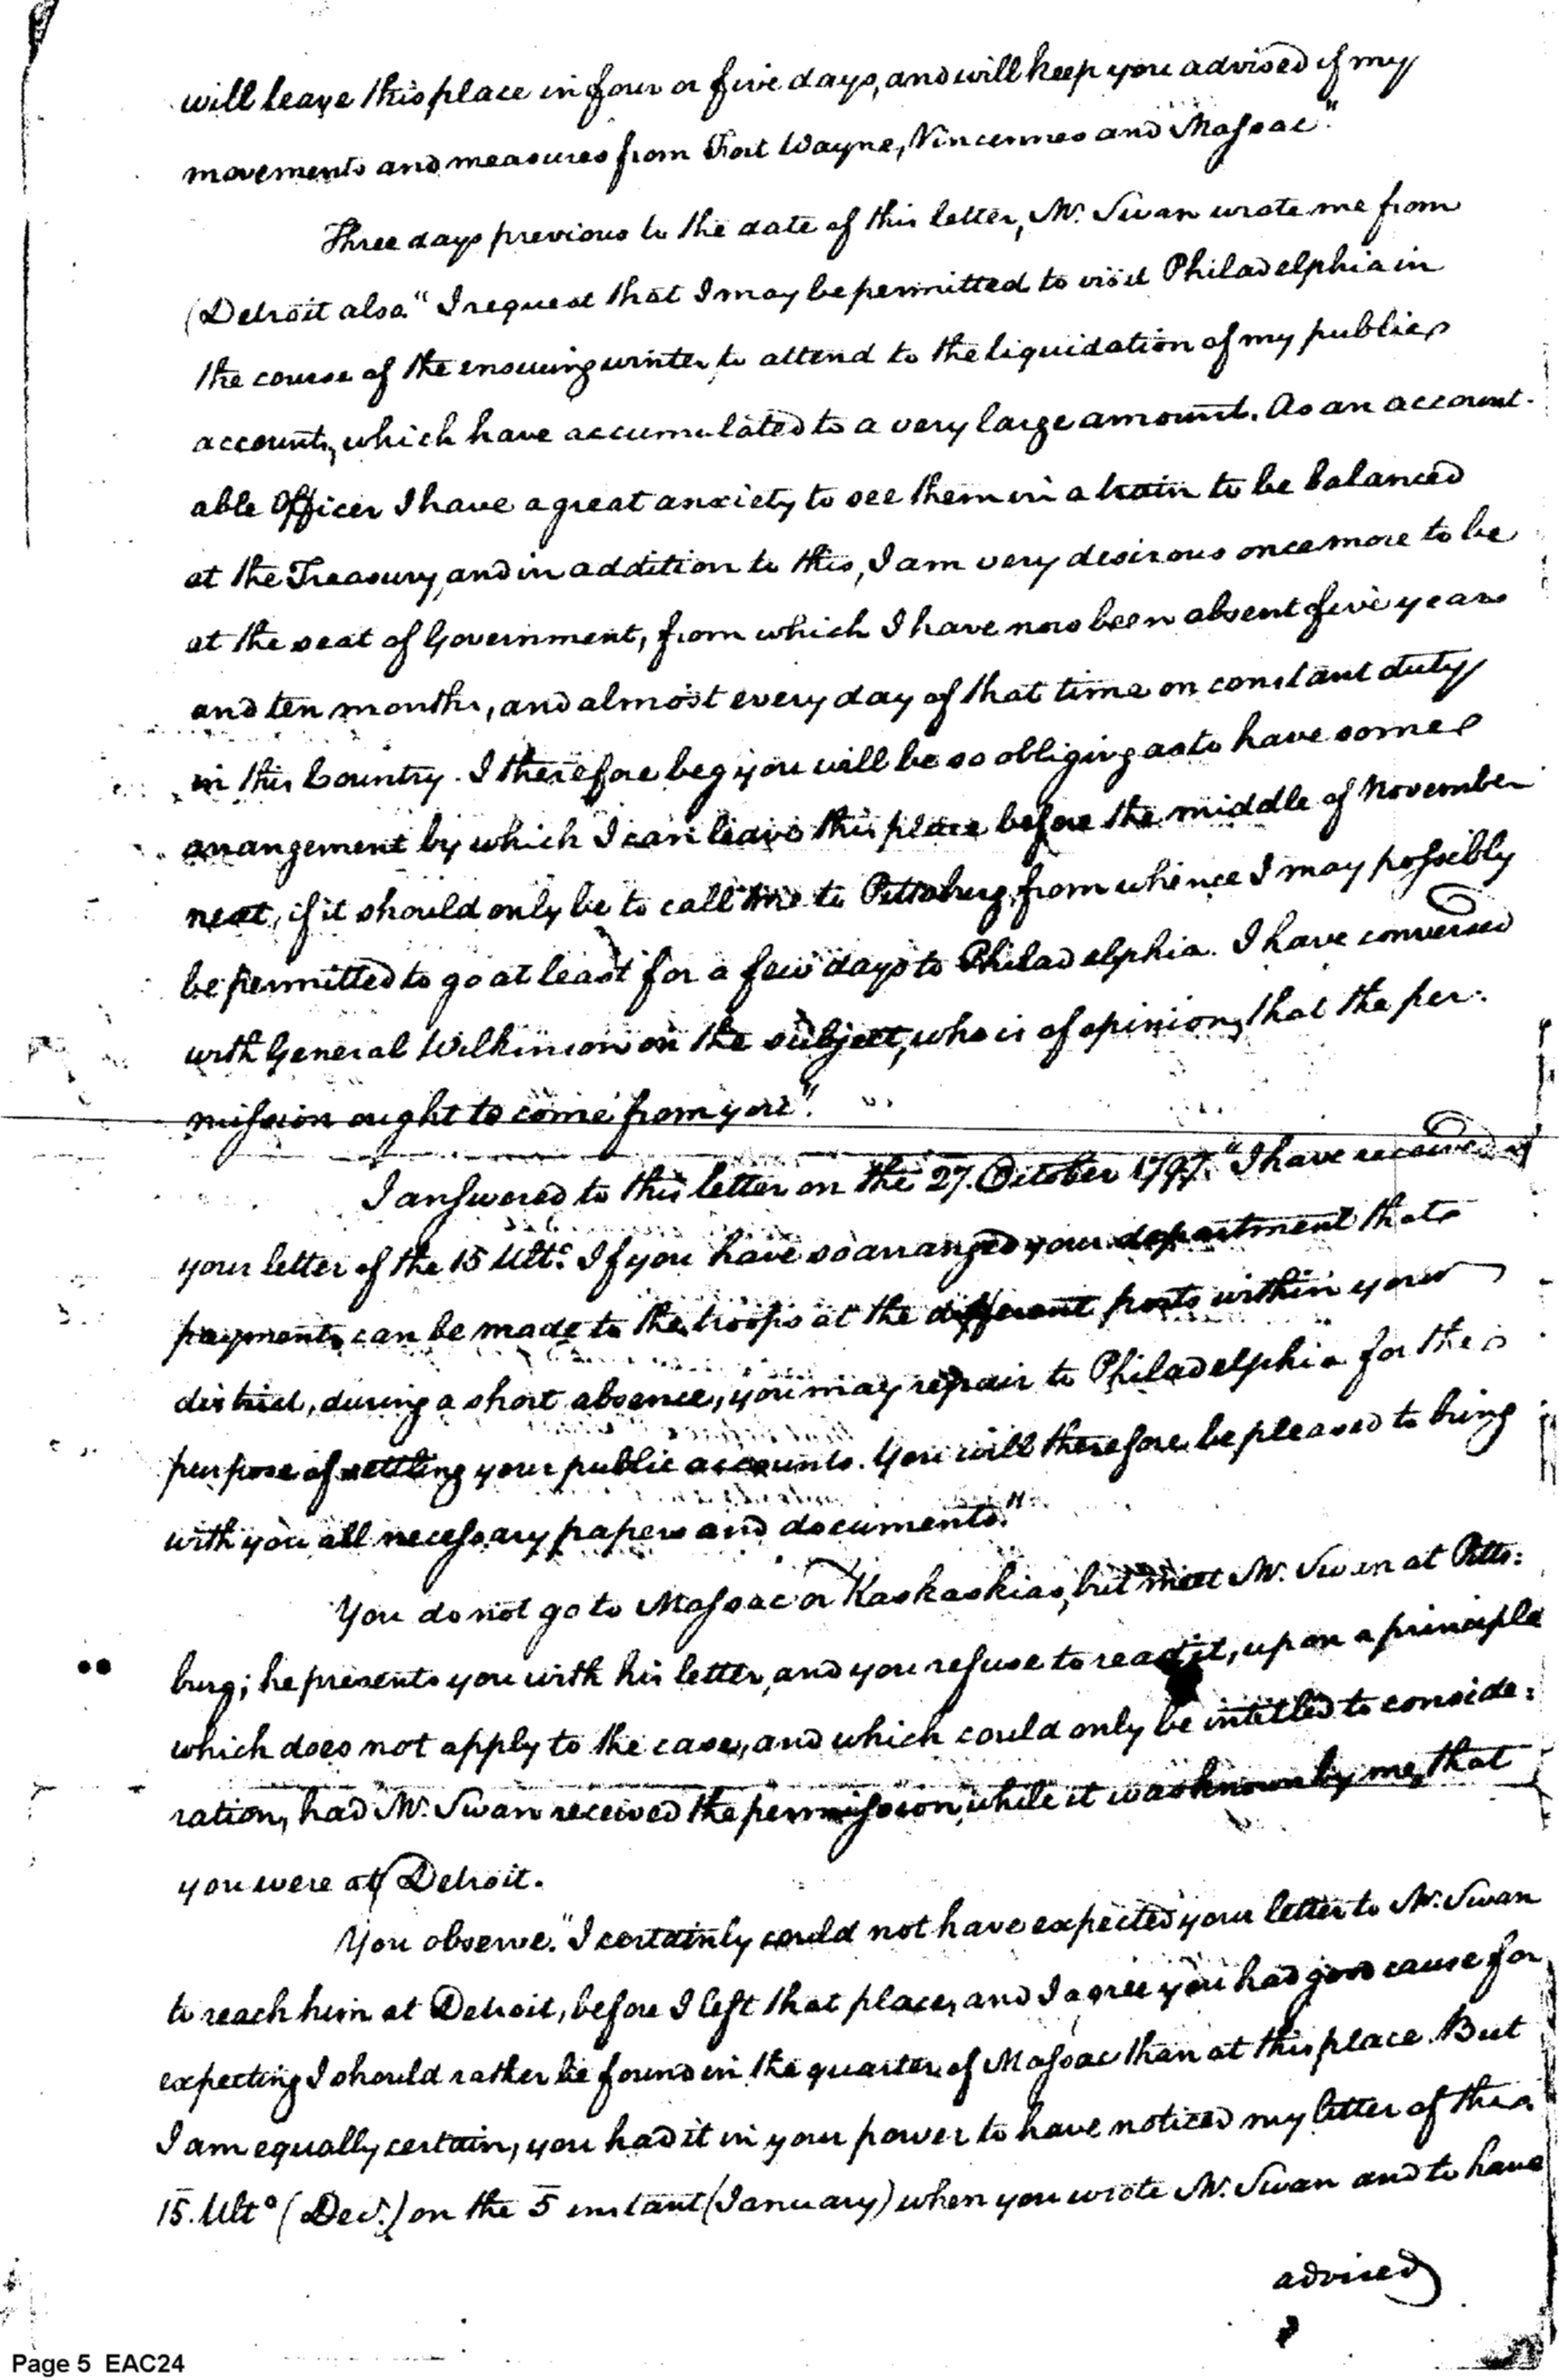 will leave this place in four or five days, and will keep you advised of my
movements and measures from Fort Wayne, Vincennes and Massac."
Three days previous to the date of this letter, Mr. Swan wrote me from
Detroit also. "I request that I may be permitted to visit Philadelphia in
the course of the ensuing winter, to attend to the liquidation of my public
accounts, which have accumulated to a very large amount. As an account-
able Officer I have a great anxiety to see them in a train to be balanced
at the Treasury, and in addition to this, I am very desirous once more to be
at the seat of Government, from which I have now been absent five years
and ten months, and almost every day of that time on constant duty
in this Country. I therefore beg you will be so obliging as to have some
arrangement by which I can leave this place before the middle of November
next, if it should only be to call me to Pittsburg, from whence I may possibly
be permitted to go at least for a few days to Philadelphia. I have conversed
with General Wilkinson on the subject, who is of opinion, that the per-
mission ought to come from you".
I answered to this letter on the 27. October 1797. "I have received
your letter of the 15 Ulto. If you have so arranged your department that
payments can be made to the troops at the different posts within your
district, during a short absence, you may repair to Philadelphia for the
purpose of settling your public accounts. You will therefore be pleased to bring
with you all necessary papers and documents."
You do not go to Massac or Kaskaskias, but meet Mr. Swan at Pitts:
burg; he presents you with his letter, and you refuse to read it, upon a principle
which does not apply to the case, and which could only be intitled to conside:
ration, had Mr. Swan received the permission, while it was known by me, that
you were at Detroit.
You observe. "I certainly could not have expected your letter to Mr. Swan
to reach him at Detroit, before I left that place, and I agree you had good cause for
expecting I should rather be found in the quarter of Massac than at this place. But
I am equally certain, you had it in your power to have noticed my letter of the
15. Ulto (Decr.) on the 5 instant (January) when you wrote Mr. Swan and to have
advised
Page 5 EAC24